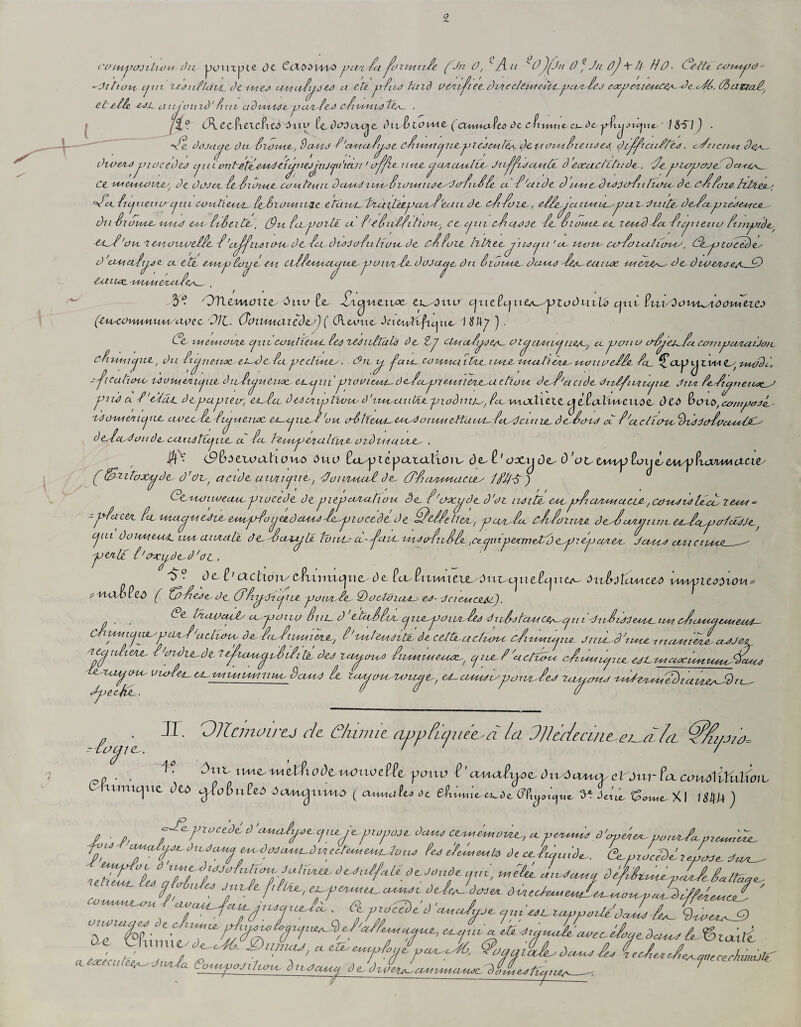 2
composition du pourpre de Cassius par la formule (Sn O, ²Au ²O)(Sn O² Sn O) + 4 HO. Cette compo-
-sition qui résultait de mes analyses a été plus tard vérifiée directement par les expériences de M. Barral,
et elle est aujourd'hui admise par les chimistes.
2° Recherches sur le dosage du brôme (annales de chimie et de physique 1851).
Le dosage du brôme, dans l'analyse chimique présente de nombreuses difficultés. Aucun des
divers procédés qui ont été enseignés jusqu'ici n'offre une garantie suffisante d'exactitude. Je propose dans
ce mémoire, de doser le brôme contenu dans un bromure soluble à l'aide d'une dissolution de chlore titrée.
La liqueur qui contient le bromure étant traitée par l'eau de chlore, elle jaunit par suite de la présence
du brôme mis en liberté. On la porte à l'ébullition, ce qui chasse le brôme et rend la liqueur limpide,
et l'on renouvelle l'affusion de la dissolution de chlore titrée jusqu'à non coloration. Ce procédé
d'analyse a été employé en allemagne pour le dosage du brôme dans les eaux mères de diverses
eaux minérales.
3° Mémoire sur le Ligneux et sur quelques produits qui lui sont isomères
(en commun avec M. Poumarède) (Revue Scientifique 1847).
Ce mémoire qui contient les résultats de 27 analyses organiques, a pour objet la comparaison
chimique, du ligneux et de la pectine. On y fait connaître une matière nouvelle la Papyrine, modi-
-fication isomérique du ligneux et qui provient de la première action de l'acide sulfurique sur le ligneux
pris à l'état de papier, et la description d'un autre produit, la matière gélatineuse des bois, composé
isomérique avec le ligneux et que l'on obtient en soumettant la sciure de bois à l'action dissolvante
de la soude caustique à la température ordinaire.
4° Observations sur la préparation de l'oxyde d'or employé en pharmacie
(Tritoxyde d'or, acide aurique, Journal de Pharmacie 1845)
Ce nouveau procédé de préparation de l'oxyde d'or usité en pharmacie, consiste à rem-
-placer la magnésie employée dans le procédé de Pelletier, par la chlorure de baryum et la potasse,
qui donnent un aurate de baryte tout-à-fait insoluble, ce qui permet de préparer sans aucune
perte l'oxyde d'or.
5° De l'action chimique de la lumière sur quelques substances impression-
-nables (Thèse de Physique pour le Doctorat es-sciences).
Ce travail a pour but d'établir que pour les substances qui subissent un changement
chimique par l'action de la lumière, l'intensité de cette action chimique suit d'une manière assez
régulière l'ordre de refrangibilité des rayons lumineux, que l'action chimique est maximum dans
le rayon violet et minimum dans le rayon rouge, et ainsi pour les rayons intermédiaires du
spectre.
II. Mémoires de Chimie appliquée à la Médecine et à la Physio-
-logie.
1° Sur une méthode nouvelle pour l'analyse du sang et sur la constitution
Chimique des globules sanguins (annales de Chimie et de Physique 3e Série Tome XI 1844)
Le procédé d'analyse que je propose dans ce mémoire, a permis d'opérer pour la première
fois l'analyse du sang en dosant directement tous les éléments de ce liquide. Ce procédé repose sur
l'emploi d'une dissolution saturée de sulfate de soude qui, mêlée au sang défibriné par le battage,
retient les globules sur le filtre, et permet ainsi de les doser directement et non par différence
comme on l'avait fait jusque là. Ce procédé d'analyse qui est rapporté dans les divers
ouvrages de chimie physiologique de l'allemagne, et qui a été signalé avec éloge dans le Traité
de Chimie de M. Dumas, a été employé par M. Poggiale dans les recherches que ce chimiste
a exécutées sur la Composition du sang de divers animaux domestiques.